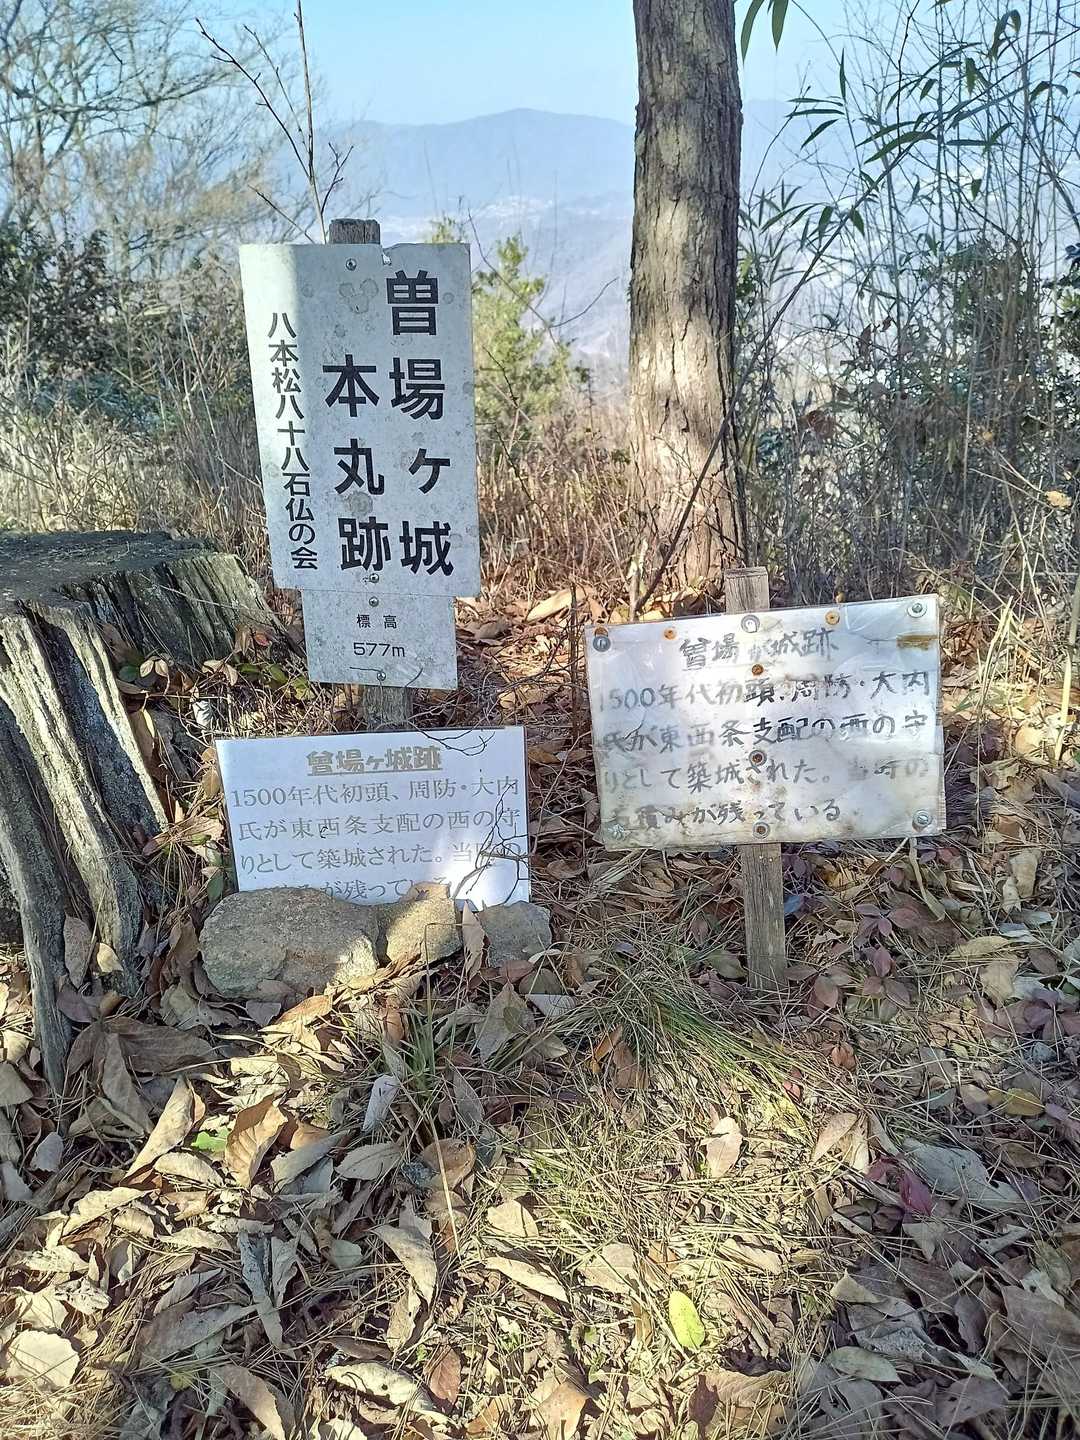 曽場ヶ城
本丸跡
八本松八十八石仏の会
標高
577m
曾場ヶ城跡
1500年代初頭、周防・大内
氏が東西条支配の西の守
りとして築城された。当時の
が残っている
曾場が城跡
1500年代初頭、周防・大内
氏が東西条支配の西の守
りとして築城された。当時の
石積みが残っている